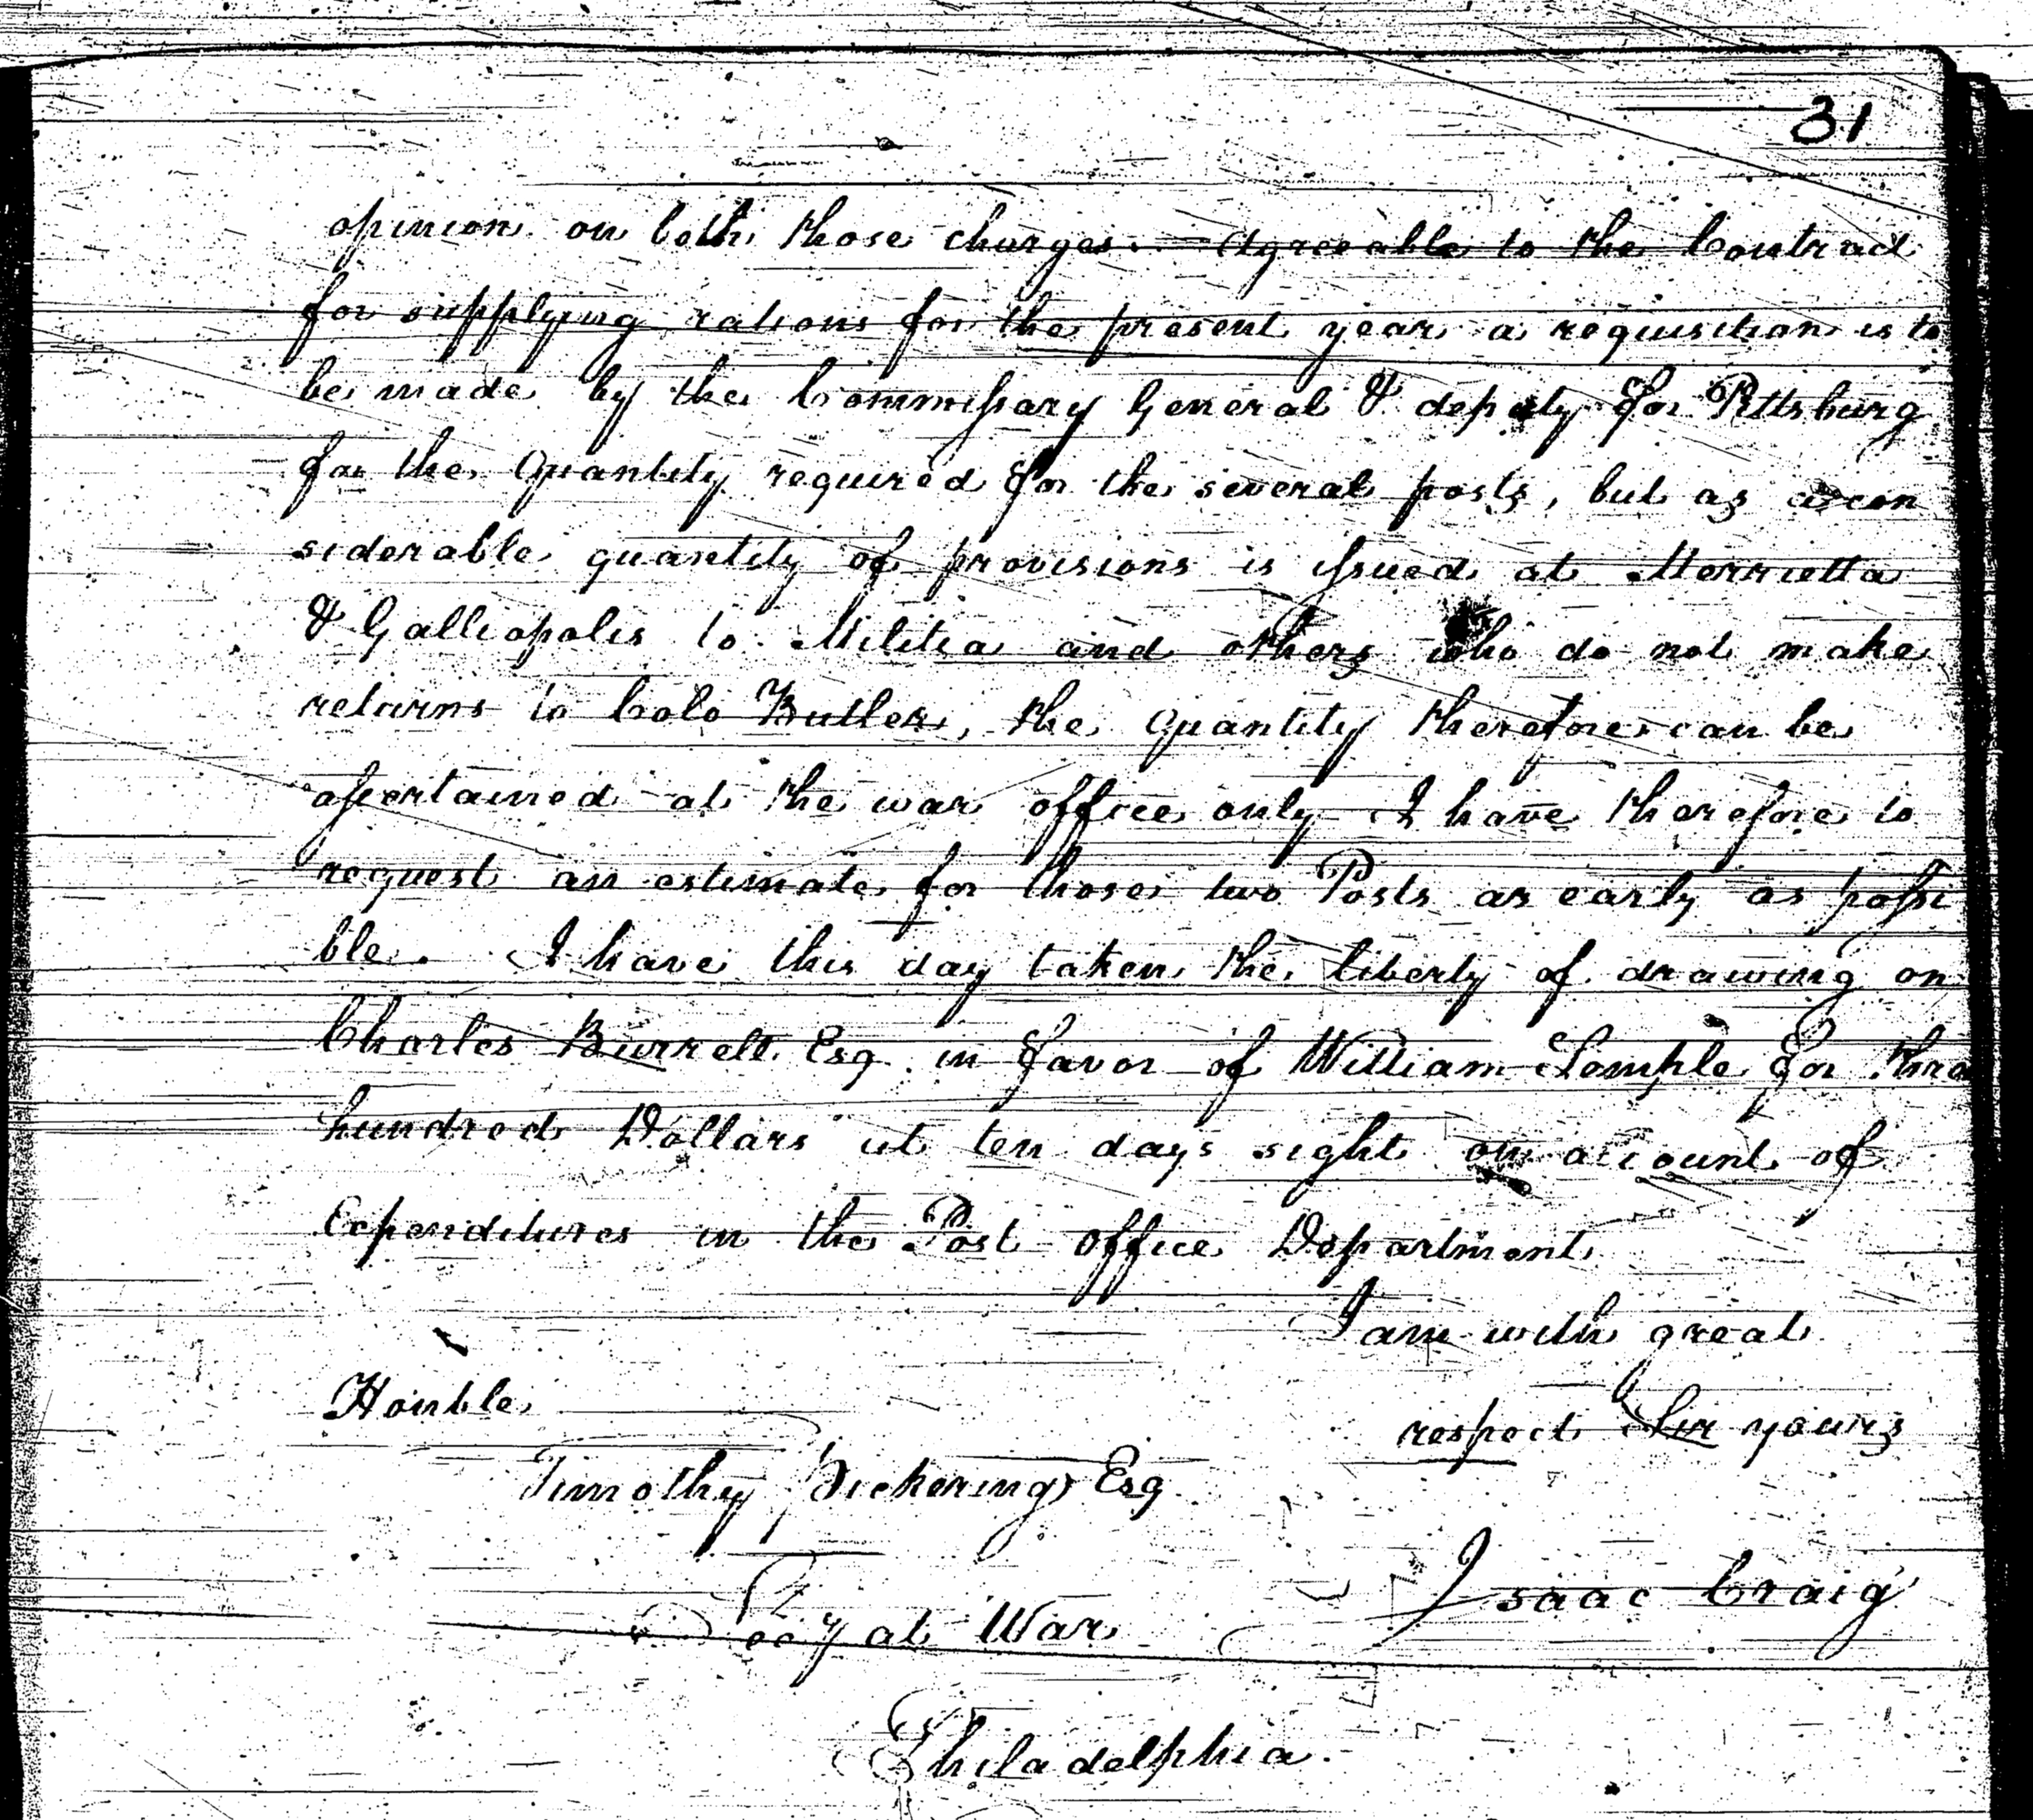 31
opinion on both those charges. Agreeable to the Contract
for supplying rations for the present year a requisition is to
be made by the Commissary General & deputy for Pittsburg
for the Quantity required for the several posts, but as a con
siderable quantity of provisions is issued at Merrietta
& Galliopolis to Militia and others who do not make
returns to Colo Butler, the Quantity therefore can be
assertained at the war office only I have therefore to
request an estimate for those two Posts as early as possi
ble. I have this day taken the liberty of drawing on
Charles Burrell Esq. in favor of William Semple for three
hundred Dollars at ten days sight on account of
Expenditures in the Post office Department
I am with great
Honble
respect Sir yours
Timothy Pickering Esq
Isaac Craig
Secy at War
Philadelphia.